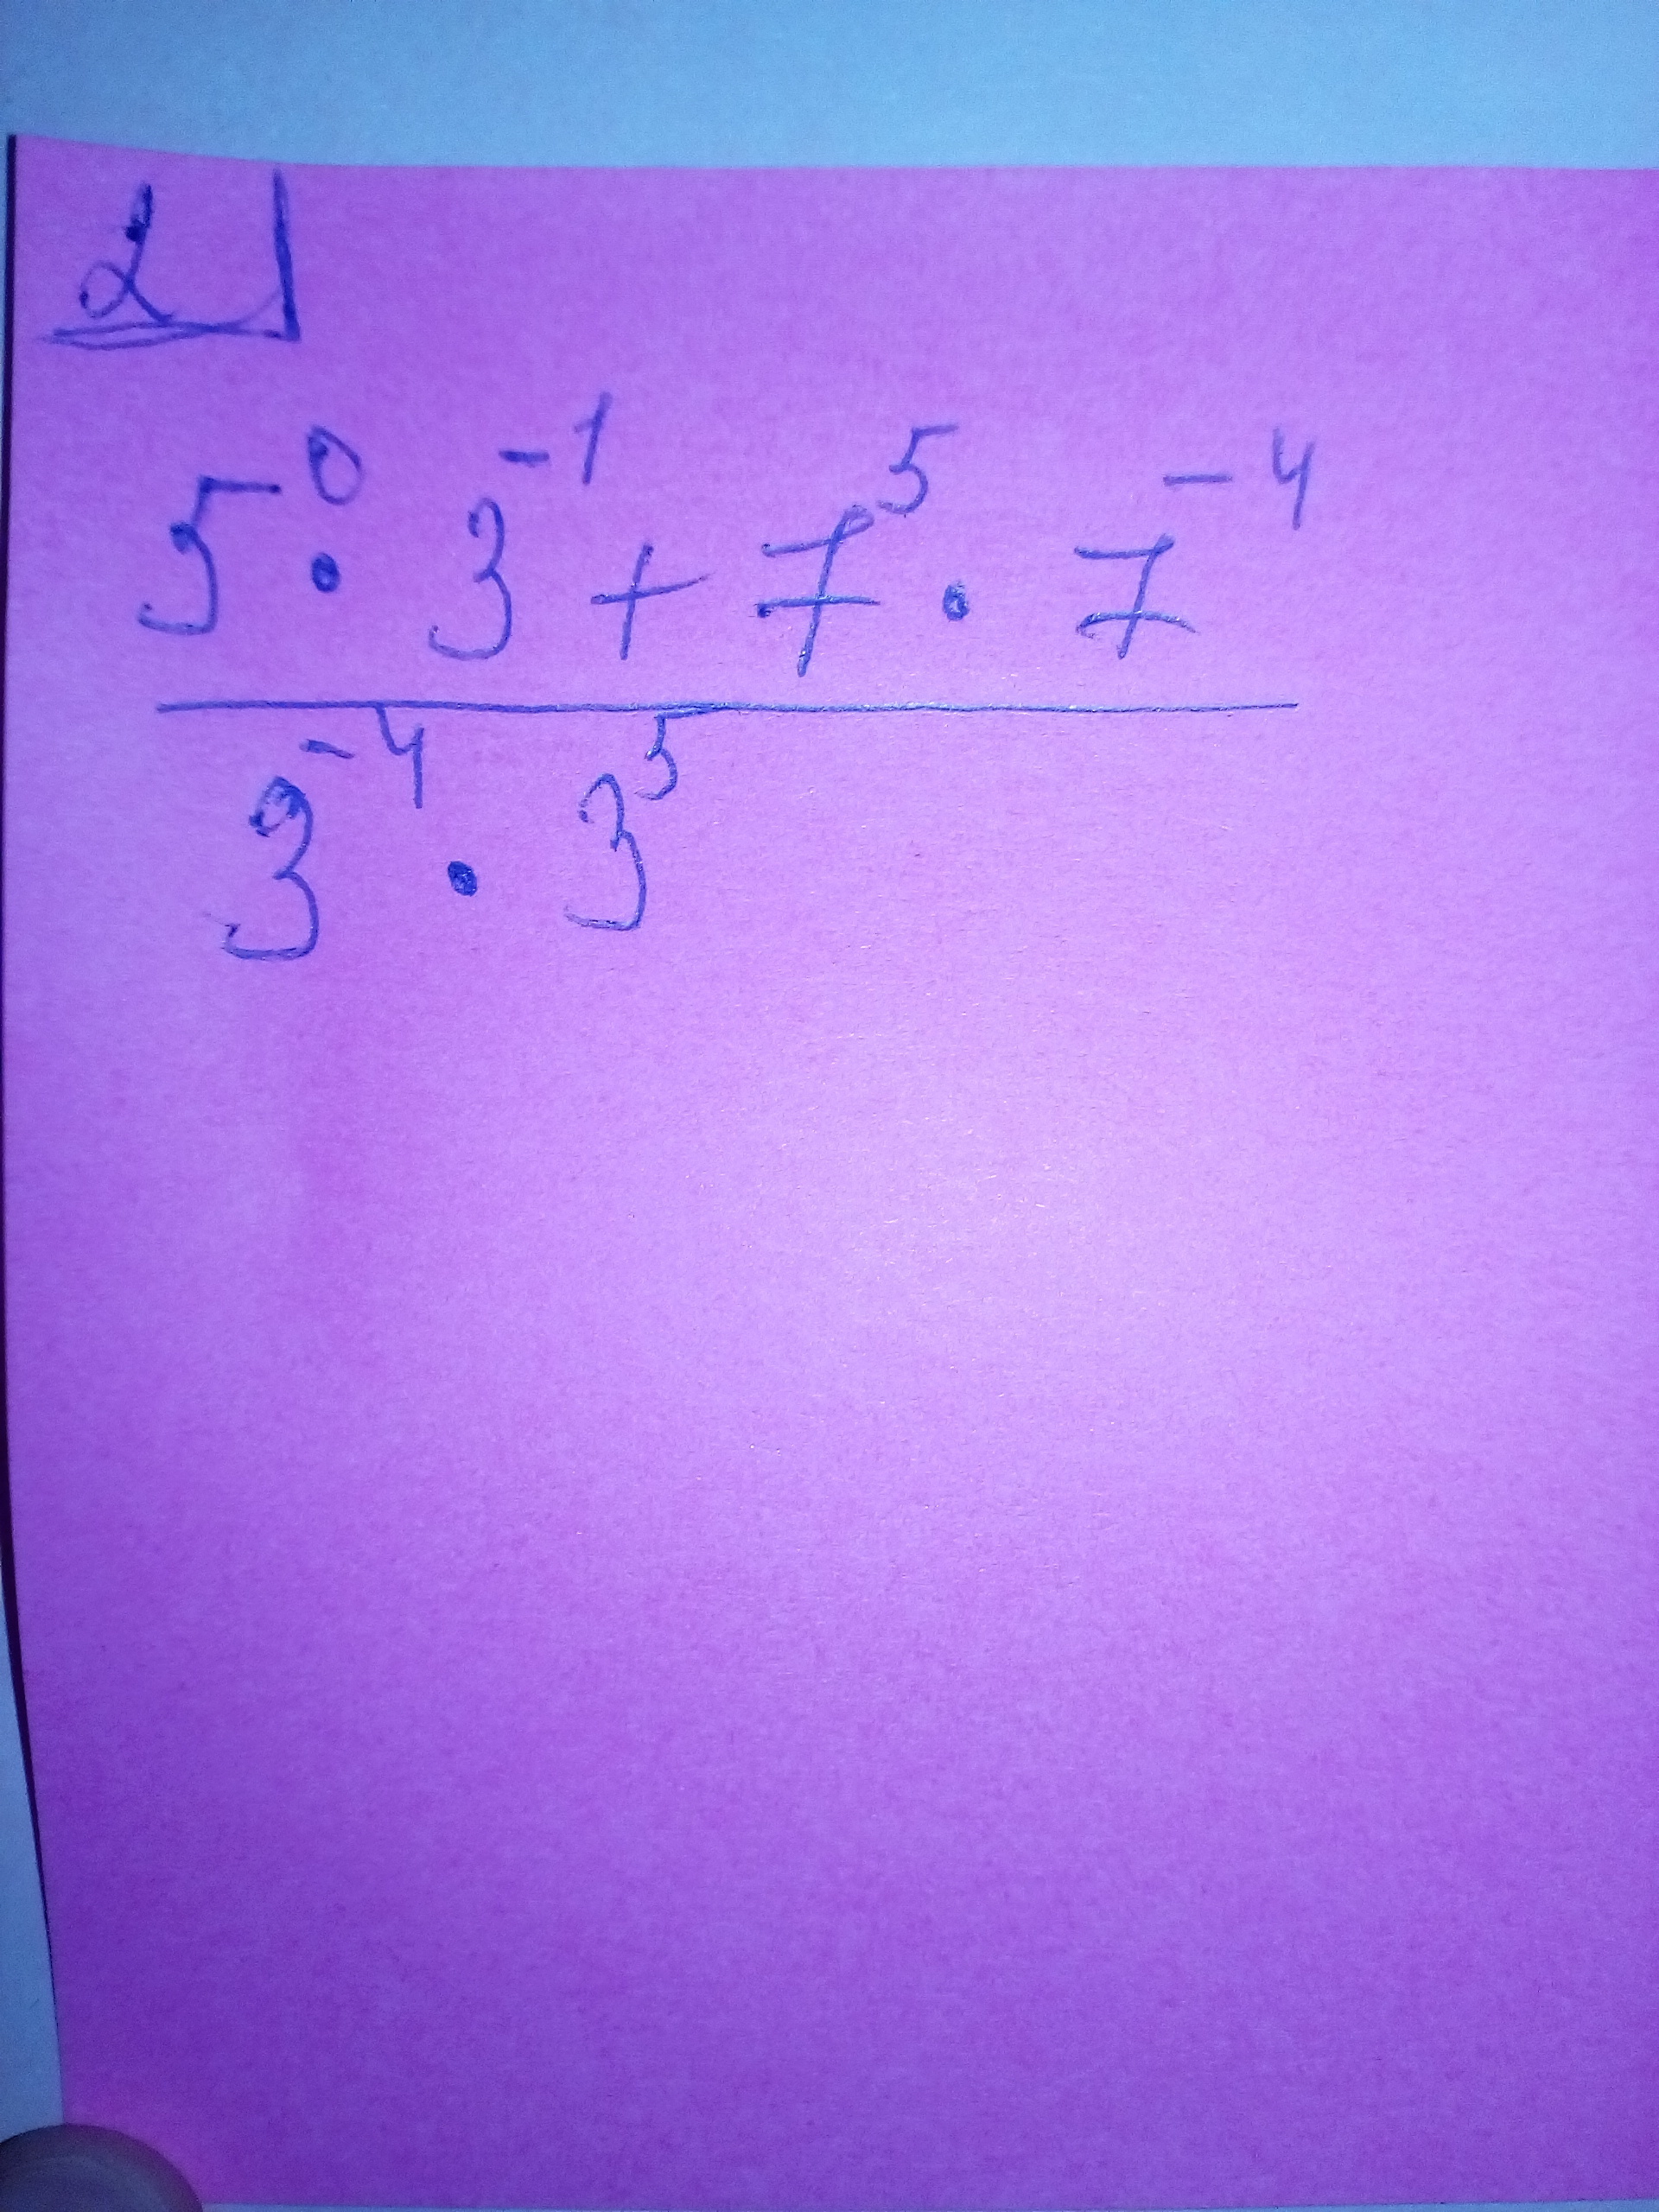 2
5⁰ · 3⁻¹ + 7⁵ · 7⁻⁴
3⁻⁴ · 3⁵